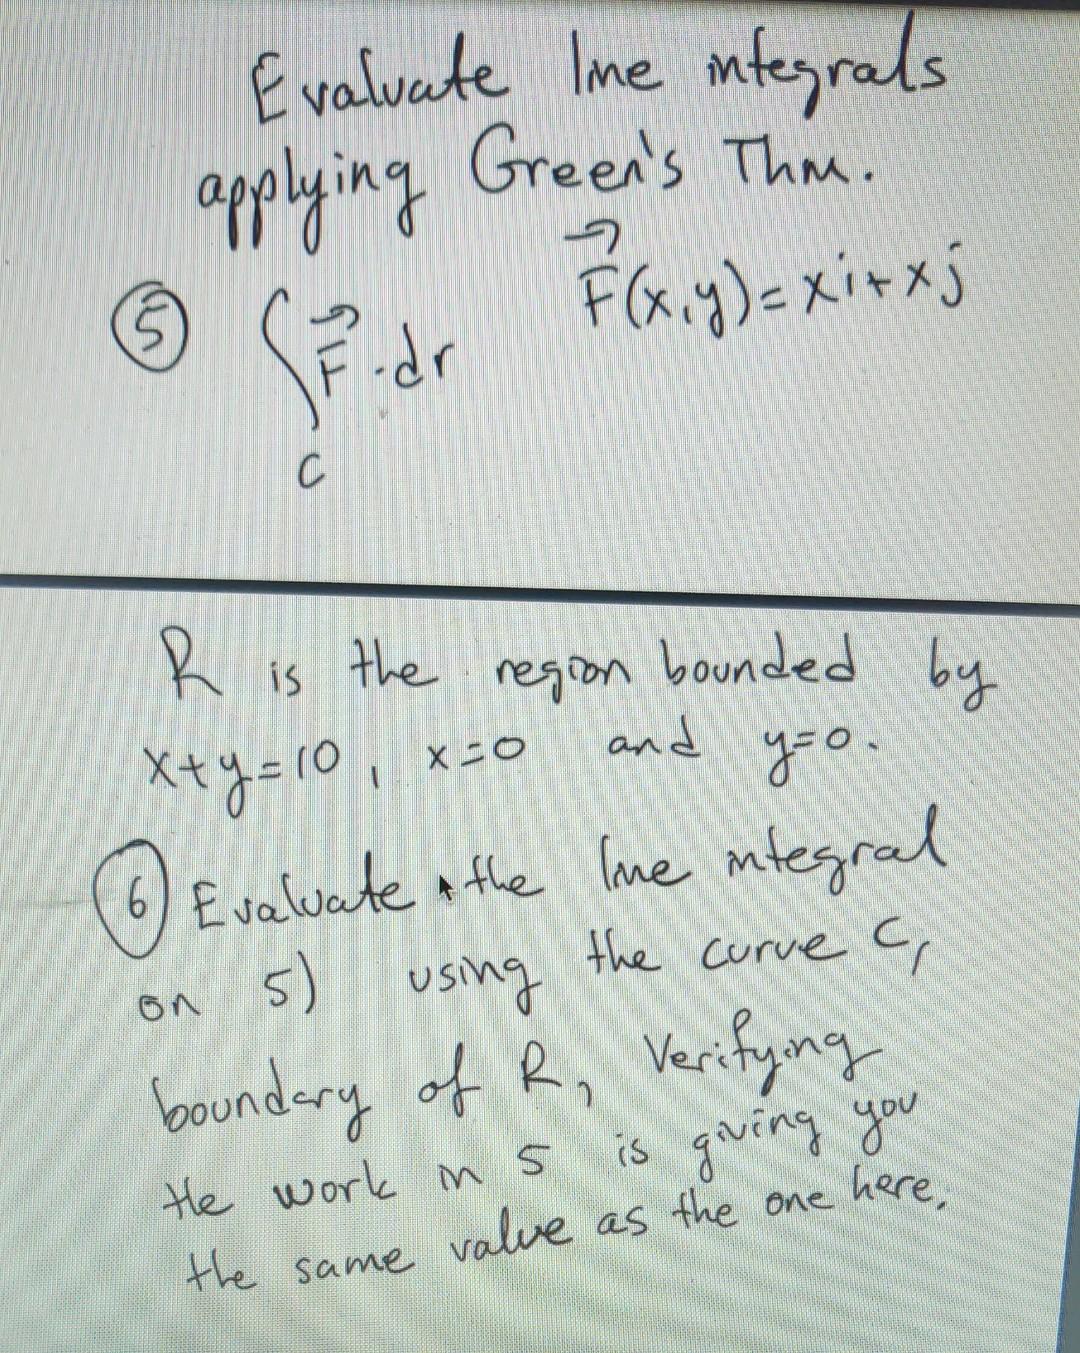 Evaluate line integrals
applying Green's Thm.
⑤ ∫_C F⃗ · dr F⃗(x,y)=xi+xj
R is the region bounded by
x+y=10, x=0 and y=0.
⑥ Evaluate the line integral
on 5) using the curve C,
boundary of R, Verifying
the work in 5 is giving you
the same value as the one here.